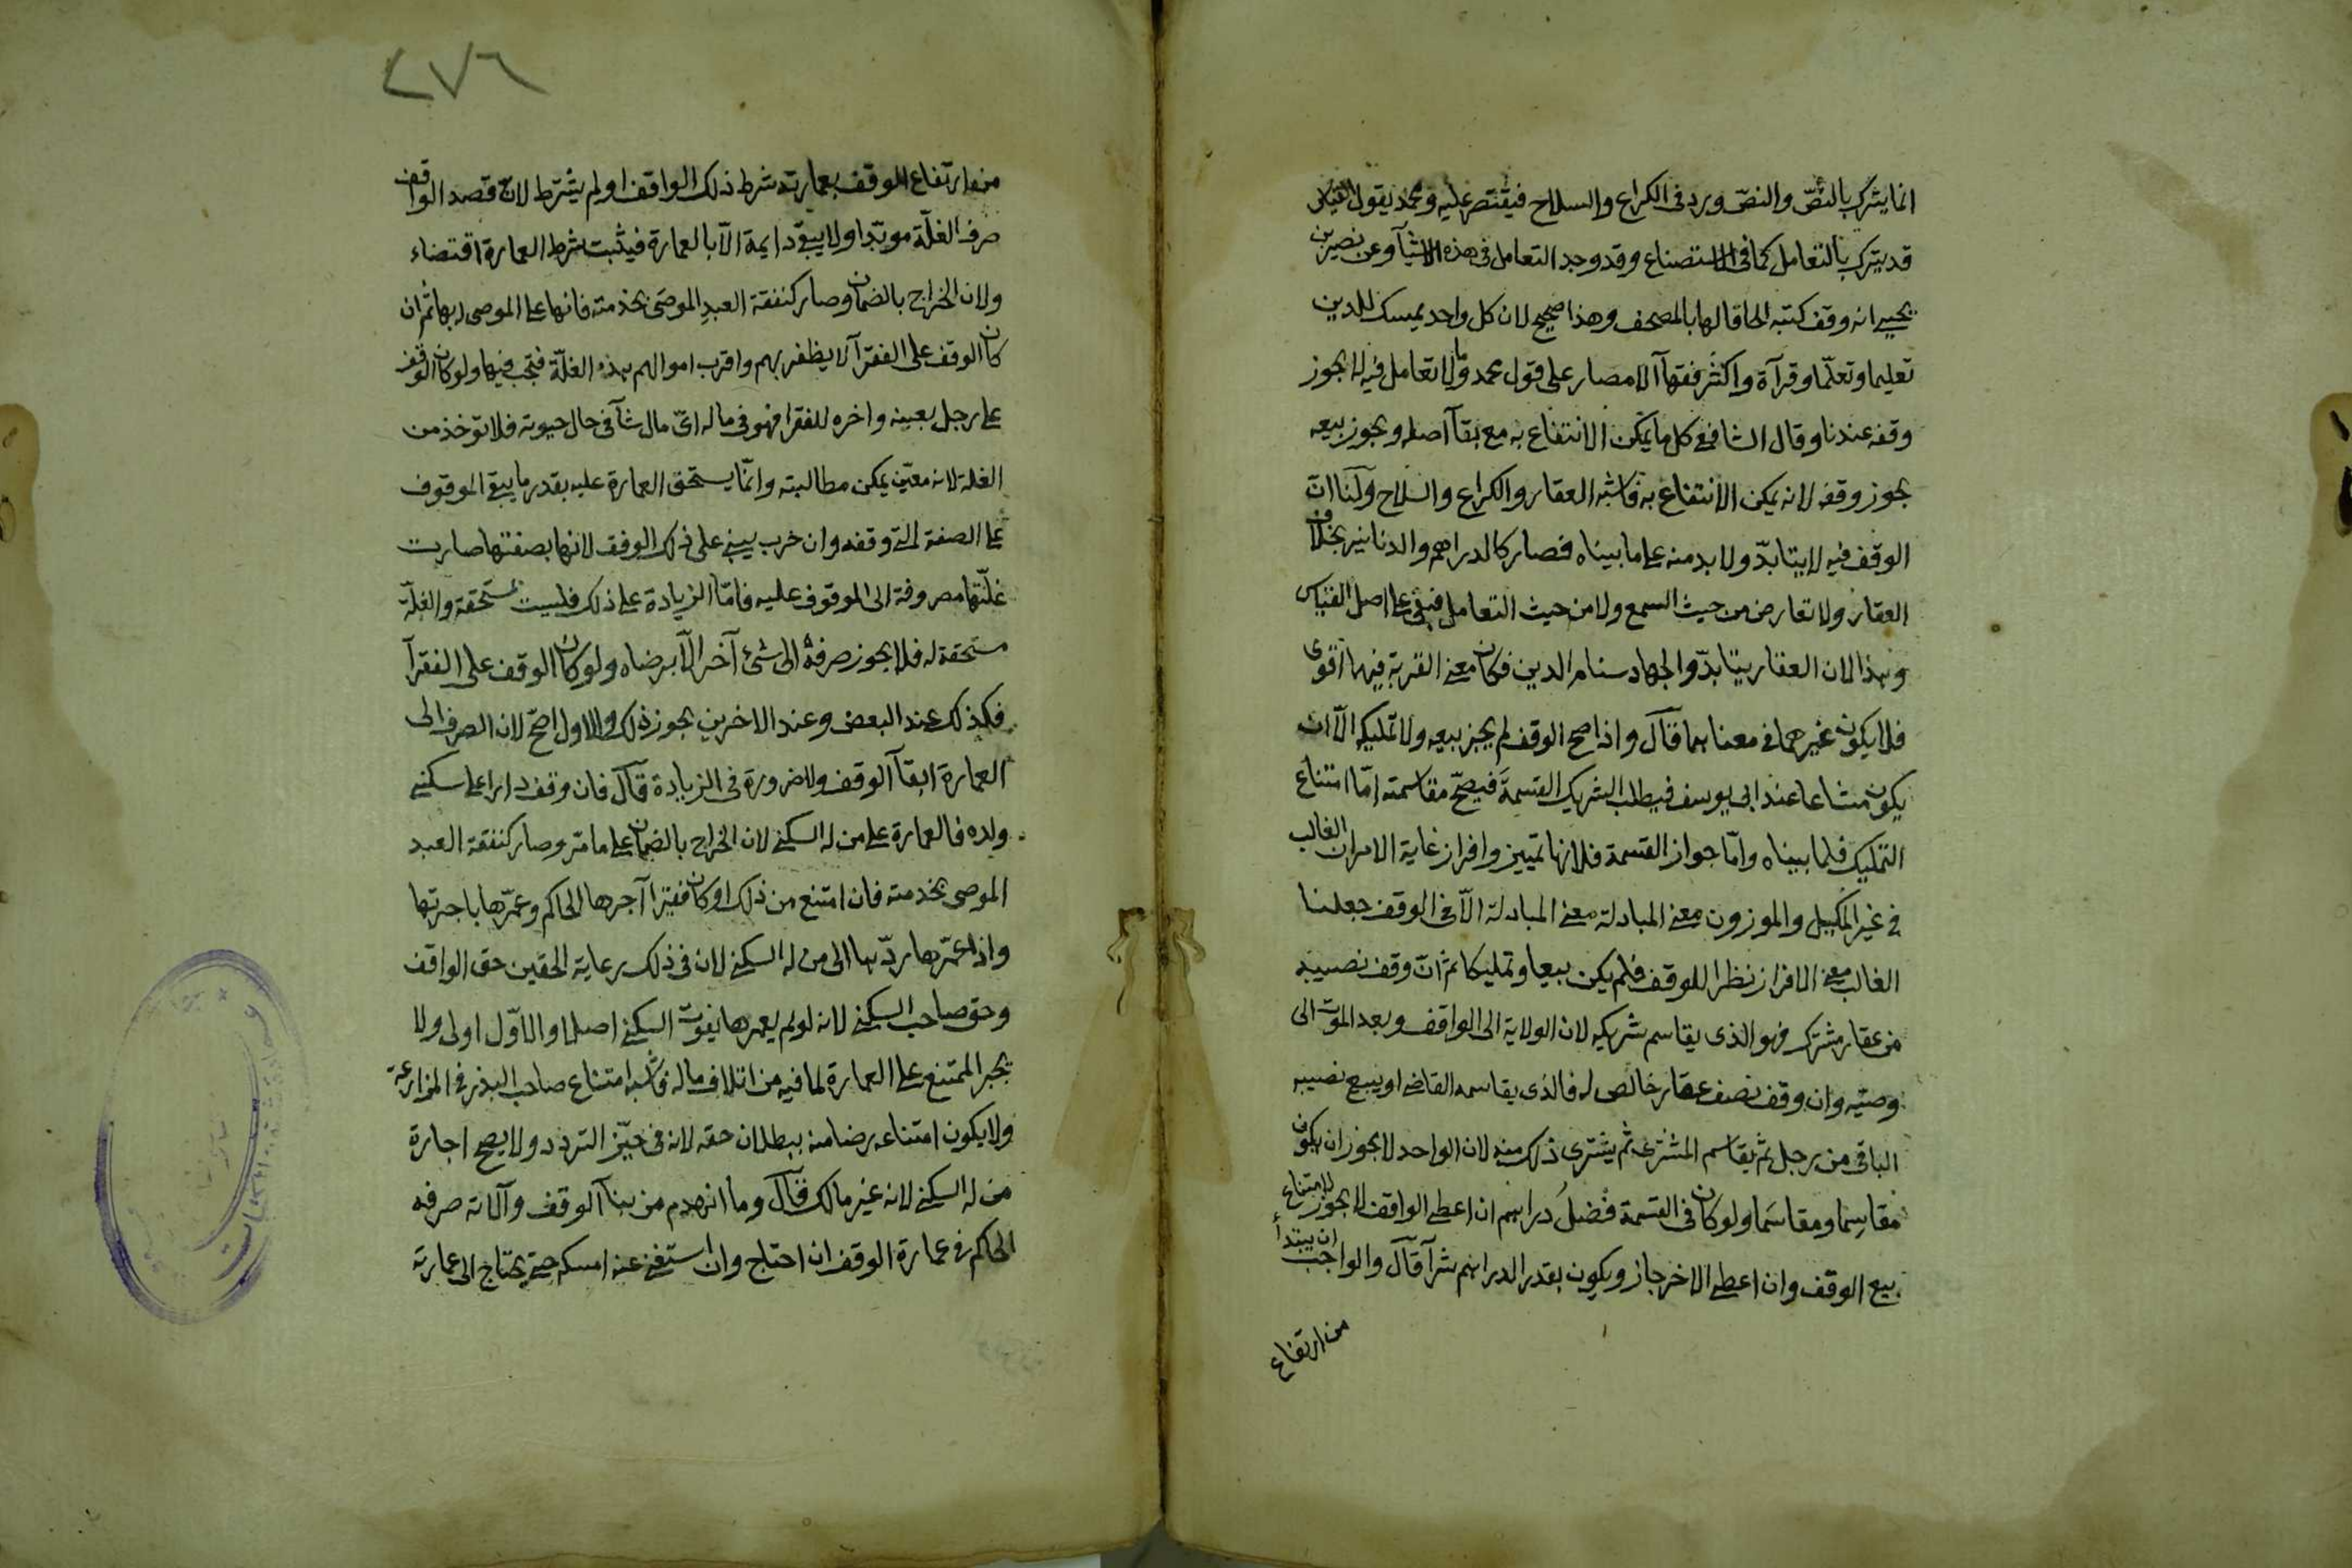 انما يترك بالنصّ والنصّ ورد فى الكراع والسلاح فيقتصر عليه ومحمد يقول القياس
قد يترك بالتعامل كما فى الاستصناع وقد وجد التعامل فى هذه الاشيآ وعن نصير بن
يحيى انه وقف كتبه الحاقا لها بالمصحف وهذا صحيح لان كل واحد يمسك للدين
تعليما وتعلّما وقرآة واكثر فقهآ الامصار على قول محمد وما لا تعامل فيه لا يجوز
وقفه عندنا وقال الشافعى كل ما يمكن الانتفاع به مع بقآ اصله ويجوز بيعه
يجوز وقفه لانه يمكن الانتفاع به فاشبه العقار والكراع والسلاح ولنا انّ
الوقف فيه لا يتابدّ ولا بد منه على ما بيناه فصار كالدراهم والدنانير بخلاف
العقار ولا تعارض من حيث السمع ولا من حيث التعامل فبقى على اصل القياس
وهذا لان العقار يتابدّ والجهاد سنام الدين فكان معنى القربة فيهما اقوى
فلا يكون غيرهما فى معناهما قال واذا صح الوقف لم يجز بيعه ولا تمليكه الّا ان
يكون مشاعا عند ابى يوسف فيطلب الشريك القسمة فيصحّ مقاسمته امّا امتناع
التمليك فلما بيناه وامّا جواز القسمة فلانها تمييز وافراز غاية الامر ان الغالب
فى غير المكيل والموزون معنى المبادلة معنى المبادلة الّا فى الوقف جعلنا
الغالب معنى الافراز نظرا للوقف فلم يكن بيعا وتمليكا ثم انّ وقف نصيبه
من عقار مشترك فهو الذى يقاسم شريكه لان الولاية الى الواقف وبعد الموت الى
وصيّه وان وقف نصف عقار خالص له فالذى يقاسمه القاضى او يبيع نصيبه
الباقى من رجل ثم يقاسم المشترى ثم يشترى ذلك منه لان الواحد لا يجوز ان يكون
مقاسِما ومقاسَما ولو كان فى القسمة فضلُ دراهم ان اعطى الواقف لا يجوز لامتناع
بيع الوقف وان اعطى الاخر جاز ويكون بقدر الدراهم شرآ قال والواجب ان يبتدأ
من ارتفاع
٢٧٦
من ارتفاع الوقف بعمارته شرط ذلك الواقف او لم يشترط لانّ قصد الواقف
صرف الغلّة موبّدا ولا يبقى دايمة الّا بالعمارة فيثبت شرط العمارة اقتضاء
ولان الخراج بالضمان وصار كنفقة العبد الموصى بخدمته فانها على الموصى له بها ثم ان
كان الوقف على الفقرآ لا يظفر بهم واقرب اموالهم هذه الغلّة فتجب فيها ولو كان الوقف
على رجل بعينه واخره للفقرا فهو فى ماله اىّ مال شآ فى حال حيوته فلا توخذ من
الغلة لانه معيّن يمكن مطالبته وانّما يستحق العمارة عليه بقدر ما يبقى الموقوف
على الصفة التى وقفه وان خرب يبنى على ذلك الوقف لانها بصفتها صارت
غلّتها مصروفة الى الموقوف عليه فامّا الزيادة على ذلك فليست بمستحقة والغلّة
مستحقة له فلا يجوز صرفهُ الى شئ آخر الّا برضاه ولو كان الوقف على الفقرآ
فكذلك عند البعض وعند الاخرين يجوز ذلك والاول اصحّ لان الصرف الى
العمارة ابقآ الوقف ولا ضرورة فى الزيادة قال فان وقف دارا على سكنى
ولده فالعمارة على من له السكنى لان الخراج بالضمان على ما مرّ وصار كنفقة العبد
الموصى بخدمته فان امتنع من ذلك او كان فقيرا آجرها الحاكم وعمّرها باجرتها
واذا عمّرها ردّها الى من له السكنى لان فى ذلك رعاية الحقين حق الواقف
وحق صاحب السكنى لانه لو لم يعمرها يفوت السكنى اصلا والاوّل اولى ولا
يجبر الممتنع على العمارة لما فيه من اتلاف ماله فاشبه امتناع صاحب البذر فى المزارعة
ولا يكون امتناعه رضا منه ببطلان حقه لانه فى حيّز التردد ولا يصح اجارة
من له السكنى لانه غير مالك قال وما انهدم من بنآ الوقف وآلاته صرفه
الحاكم فى عمارة الوقف ان احتاج وان استغنى عنه امسكه حتى يحتاج الى عمارته